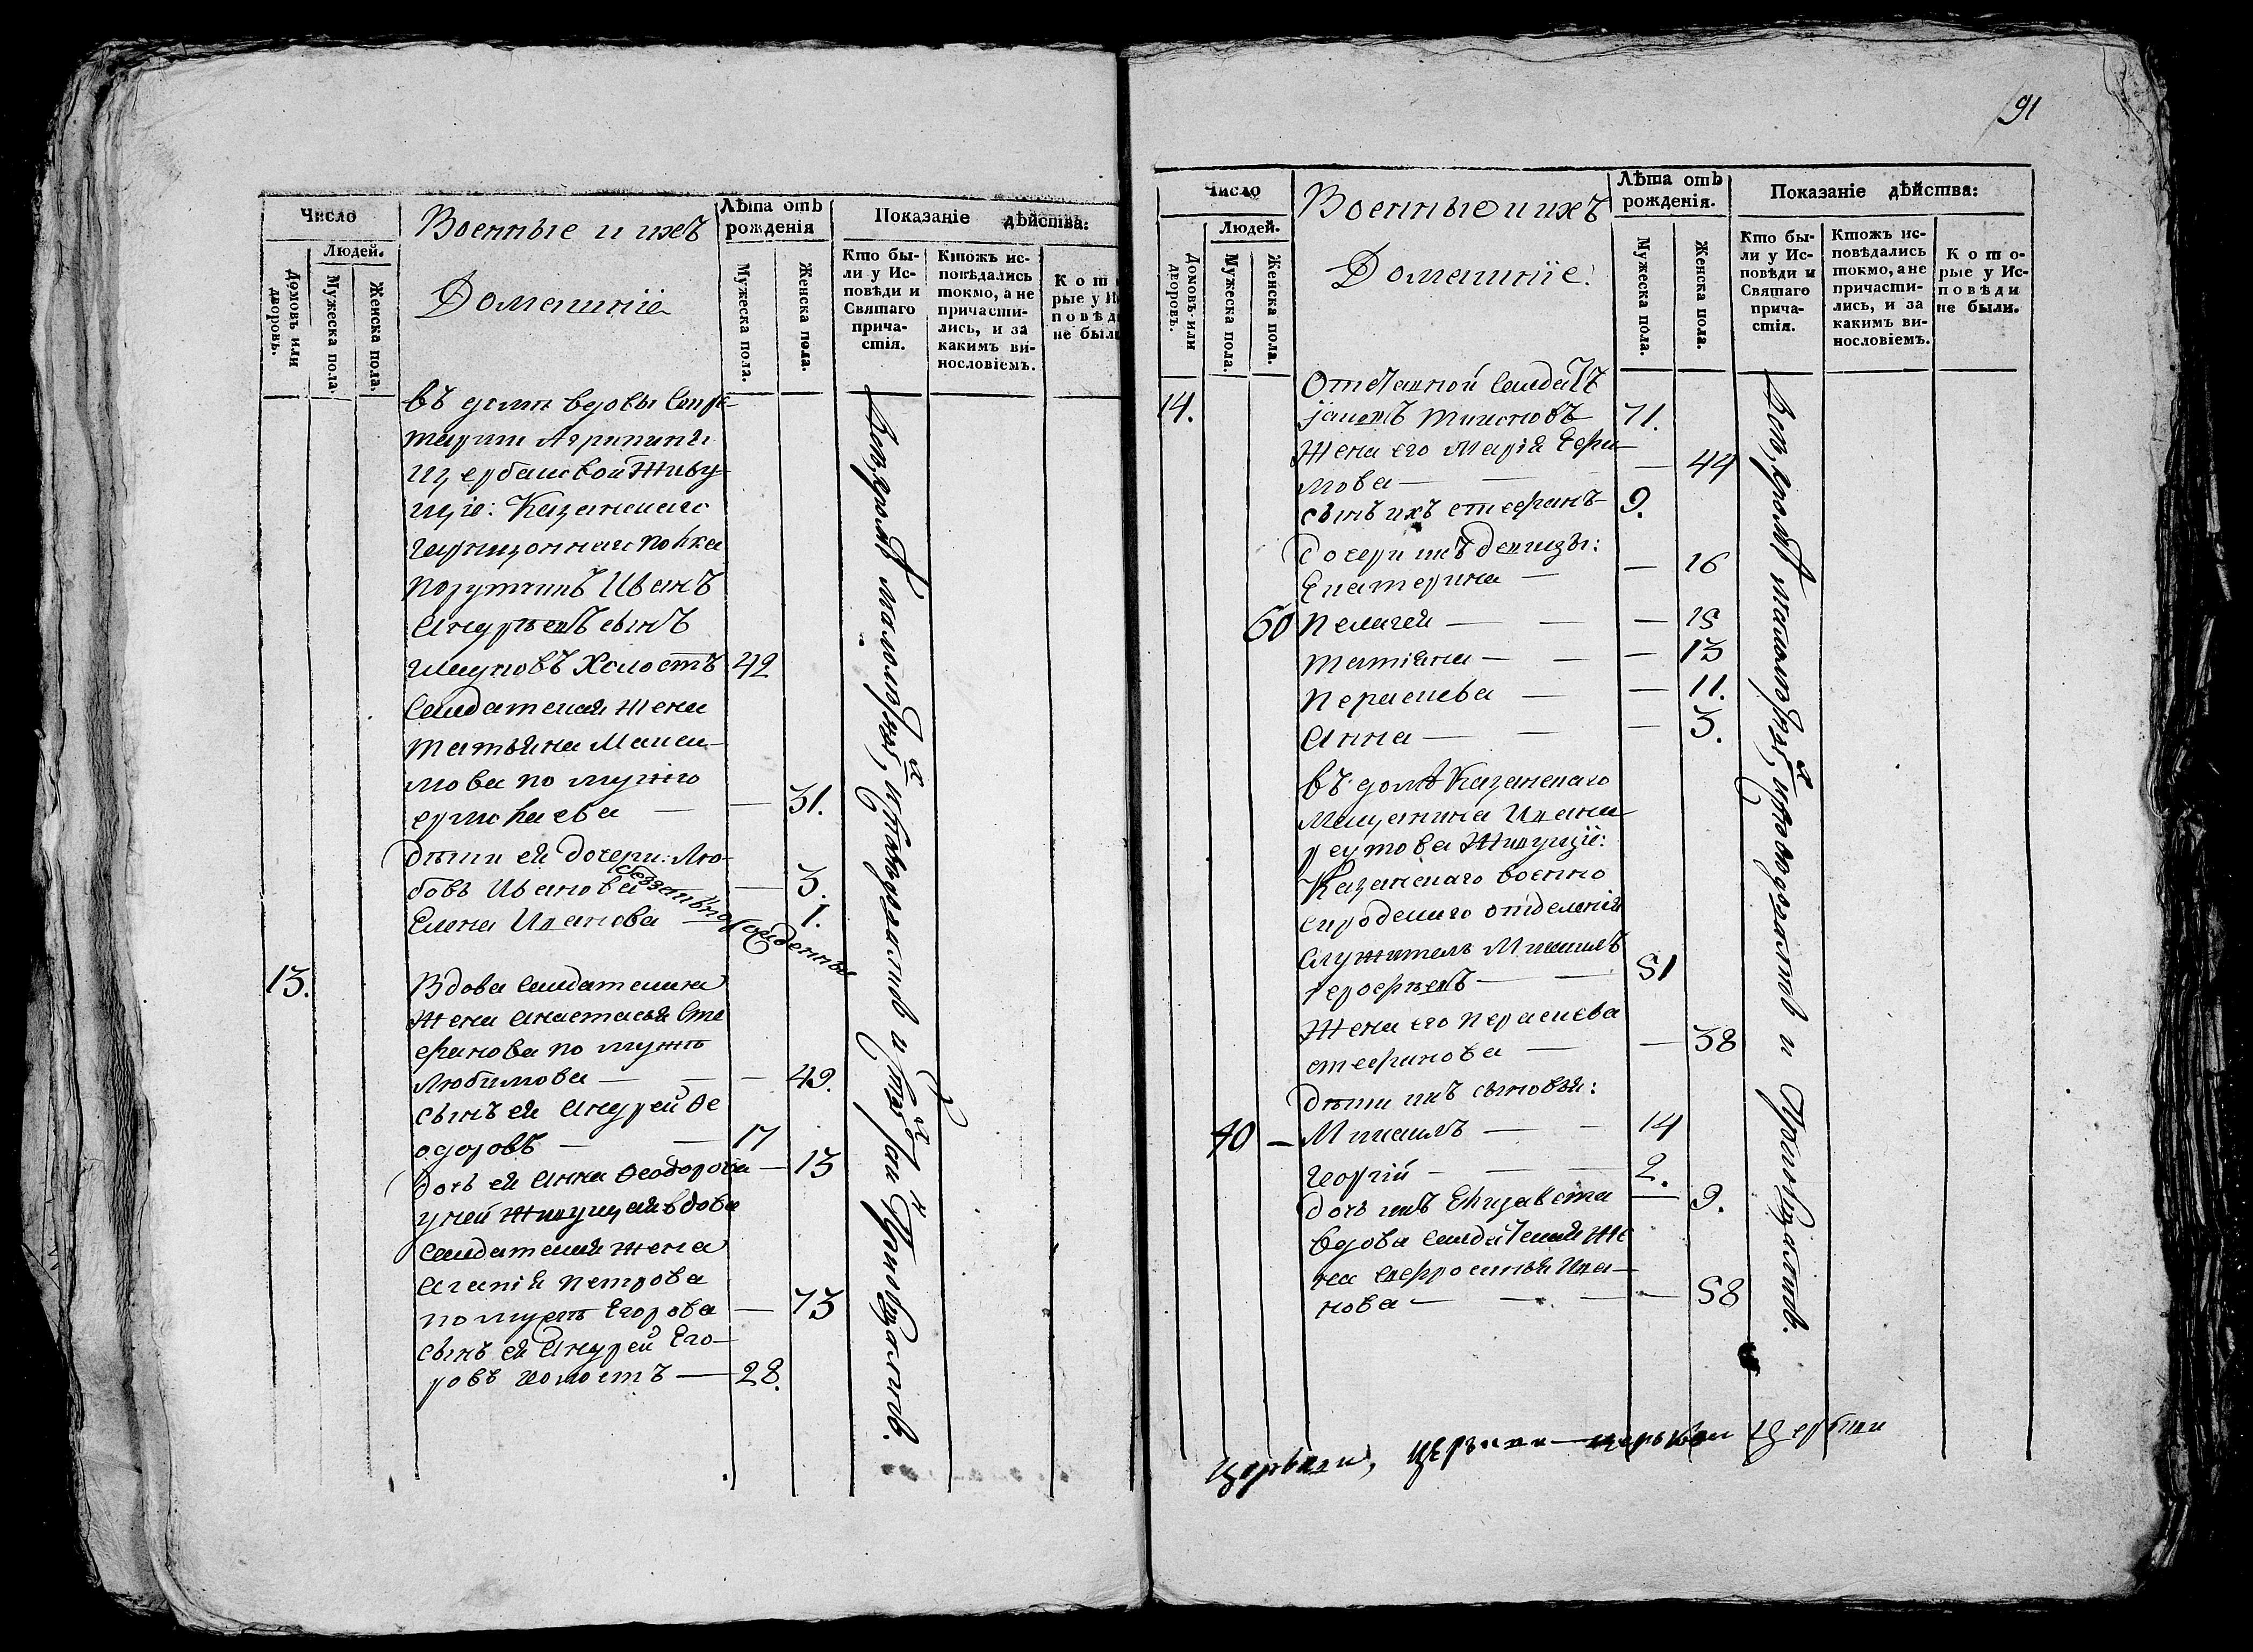 Число
Военные и ихъ
Домашніе
Лѣта отъ
рожденія
Показаніе дѣйства:
Людей.
Домовъ или
дворовъ.
Мужеска пола.
Женска пола.
Мужеска пола.
Женска пола.
Кто бы-
ли у Ис-
повѣди и
Святаго
прича-
стія.
Ктожъ ис-
повѣдались
токмо, а не
причасти-
лись, и за
какимъ ви-
нословіемъ.
К о т
рые у И
п о в ѣ д
не был
въ домѣ вдовы Секре-
тарши Агрипины
Щербаковой живу-
щіе: Казанскаго
гарнизоннаго полка
поручикъ Иванъ
Андреевъ сынъ
холостъ 42
Салдатская жена
Татьяна Макси-
мова по мужу
Ермолаева — — 31.
Дѣти ея дочери: Лю-
бовь Иванова — 3.
Елена Иванова 1.
13. Вдова Салдатская
жена Анастасья Сте
фанова по мужѣ
Любимова — — — 49.
Сынъ ея Андрей Ѳе
одоровъ — — 17
Дочь ея Анна Ѳеодорова — 13
у ней живущая вдова
Салдатская жена
Агапія Петрова
по мужѣ Егорова — 73
Сынъ ея Андрей Его-
ровъ холостъ — 28.
Всѣ, кромѣ малолѣтныхъ, исповѣдались и Святыхъ Таинъ Приобщались.
91
Число
Военные и ихъ
Домашніе.
Лѣта отъ
рожденія.
Показаніе дѣйства:
Людей.
Домовъ или
дворовъ.
Мужеска пола.
Женска пола.
Мужеска пола.
Женска пола.
Кто бы-
ли у Ис-
повѣди и
Святаго
прича-
стія.
Ктожъ ис-
повѣдались
токмо, а не
причасти-
лись, и за
какимъ ви-
нословіемъ.
К о т о-
рые у Ис-
п о в ѣ д и
не были.
Отставной Салдатъ
14. 71.
Жена его Марія Ефи-
мова — — — 44
Сынъ ихъ Стефанъ 9.
Дочери ихъ девицы:
Екатерина — — 16
60 Пелагея — — — 15
Татіана — — — 13
Параскева — — 11.
Анна — — — 3.
въ домѣ Казанскаго
Мещанина Ивана
Реутова живущіе:
Казанскаго военно
сиродскаго отделенія
Служитель Михаилъ
Терофеевъ — — 51
Жена его Параскева
Стефанова — — 38
Дѣти ихъ сыновья:
40 — Михаилъ — — 14
Георгій — — — 2.
Дочь ихъ Елизавета — 9.
Вдова Салдатская же
на Ефросинья Ива-
нова — — — — 58
Всѣ, кромѣ малолѣтныхъ, исповѣдались и Приобщались.